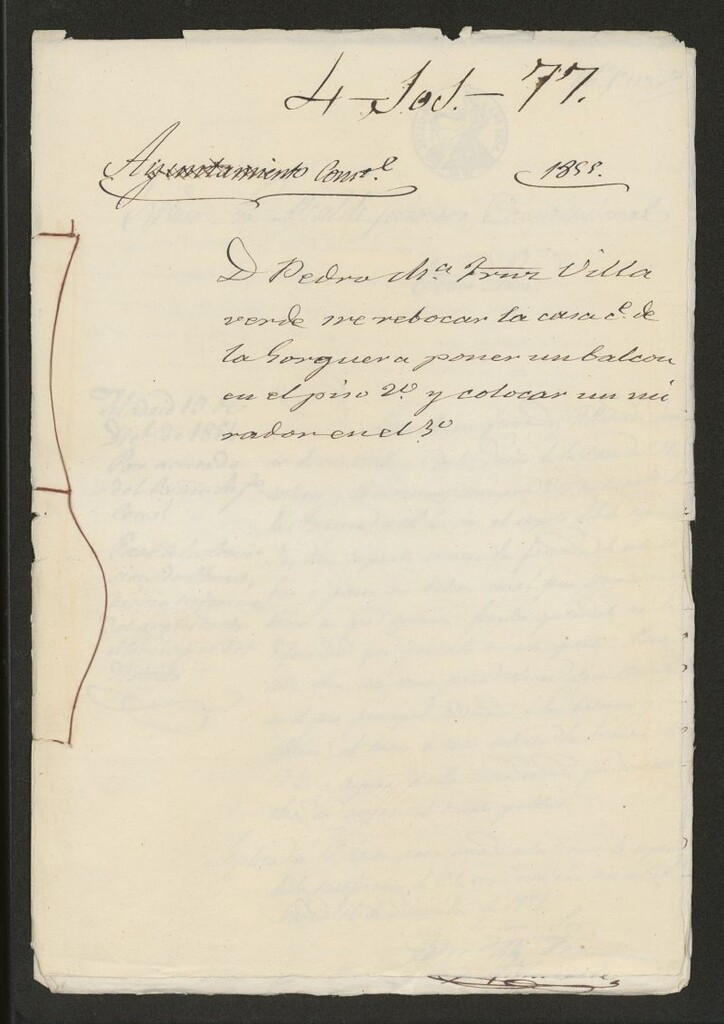 4-505.-77.
Ayuntamiento Const.l 1855.
D Pedro Ma Villa
verde re rebocar la casa ce. de
la Gorguera poner un balcon
en el piso 2º y colocar un mi
rador en el 3º